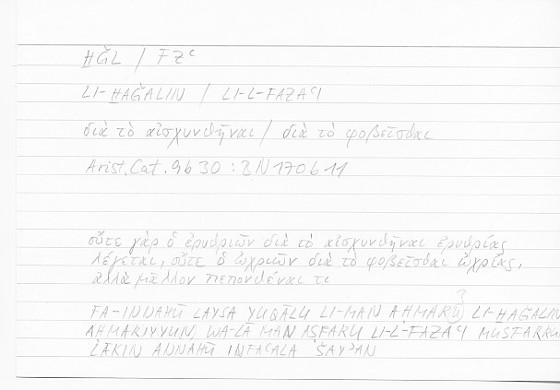 ḪǦL / FZʿ
LI-ḪAǦALIN / LI-L-FAZAʿI
διὰ τὸ αἰσχυνθῆναι / διὰ τὸ φοβεῖσθαι
Arist. Cat. 9b 30 : BN 170b11
οὔτε γὰρ ὁ ἐρυθριῶν διὰ τὸ αἰσχυνθῆναι ἐρυθρίας
λέγεται, οὔτε ὁ ὠχριῶν διὰ τὸ φοβεῖσθαι ὠχρίας,
ἀλλὰ μᾶλλον πεπονθέναι τι
?
FA-INNAHŪ LAYSA YUQĀLU LI-MAN AḤMARU LI-ḪAǦALIN
AḤMARIYYUN, WA-LĀ MAN AṢFARU LI-L-FAZAʿI MUṢFARRU
LĀKIN ANNAHŪ INFAʿALA ŠAYʾAN